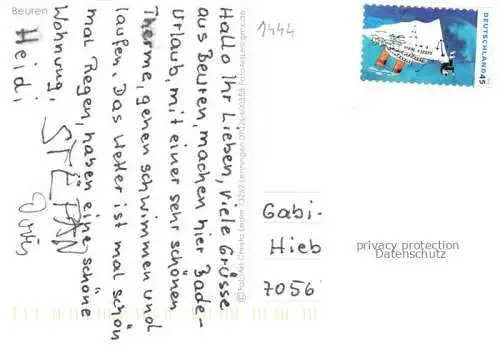 Beuren
Hallo Ihr Lieben, viele Grüsse
aus Beuren, machen hier Bade-
Urlaub, mit einer sehr schönen
Therme, gehen schwimmen und
laufen. Das Wetter ist mal schön
mal Regen, haben eine schöne
Wohnung.
Heidi
STEFAN
1444
DEUTSCHLAND 45
Gabi-
Hieb
7056
privacy protection
Datenschutz